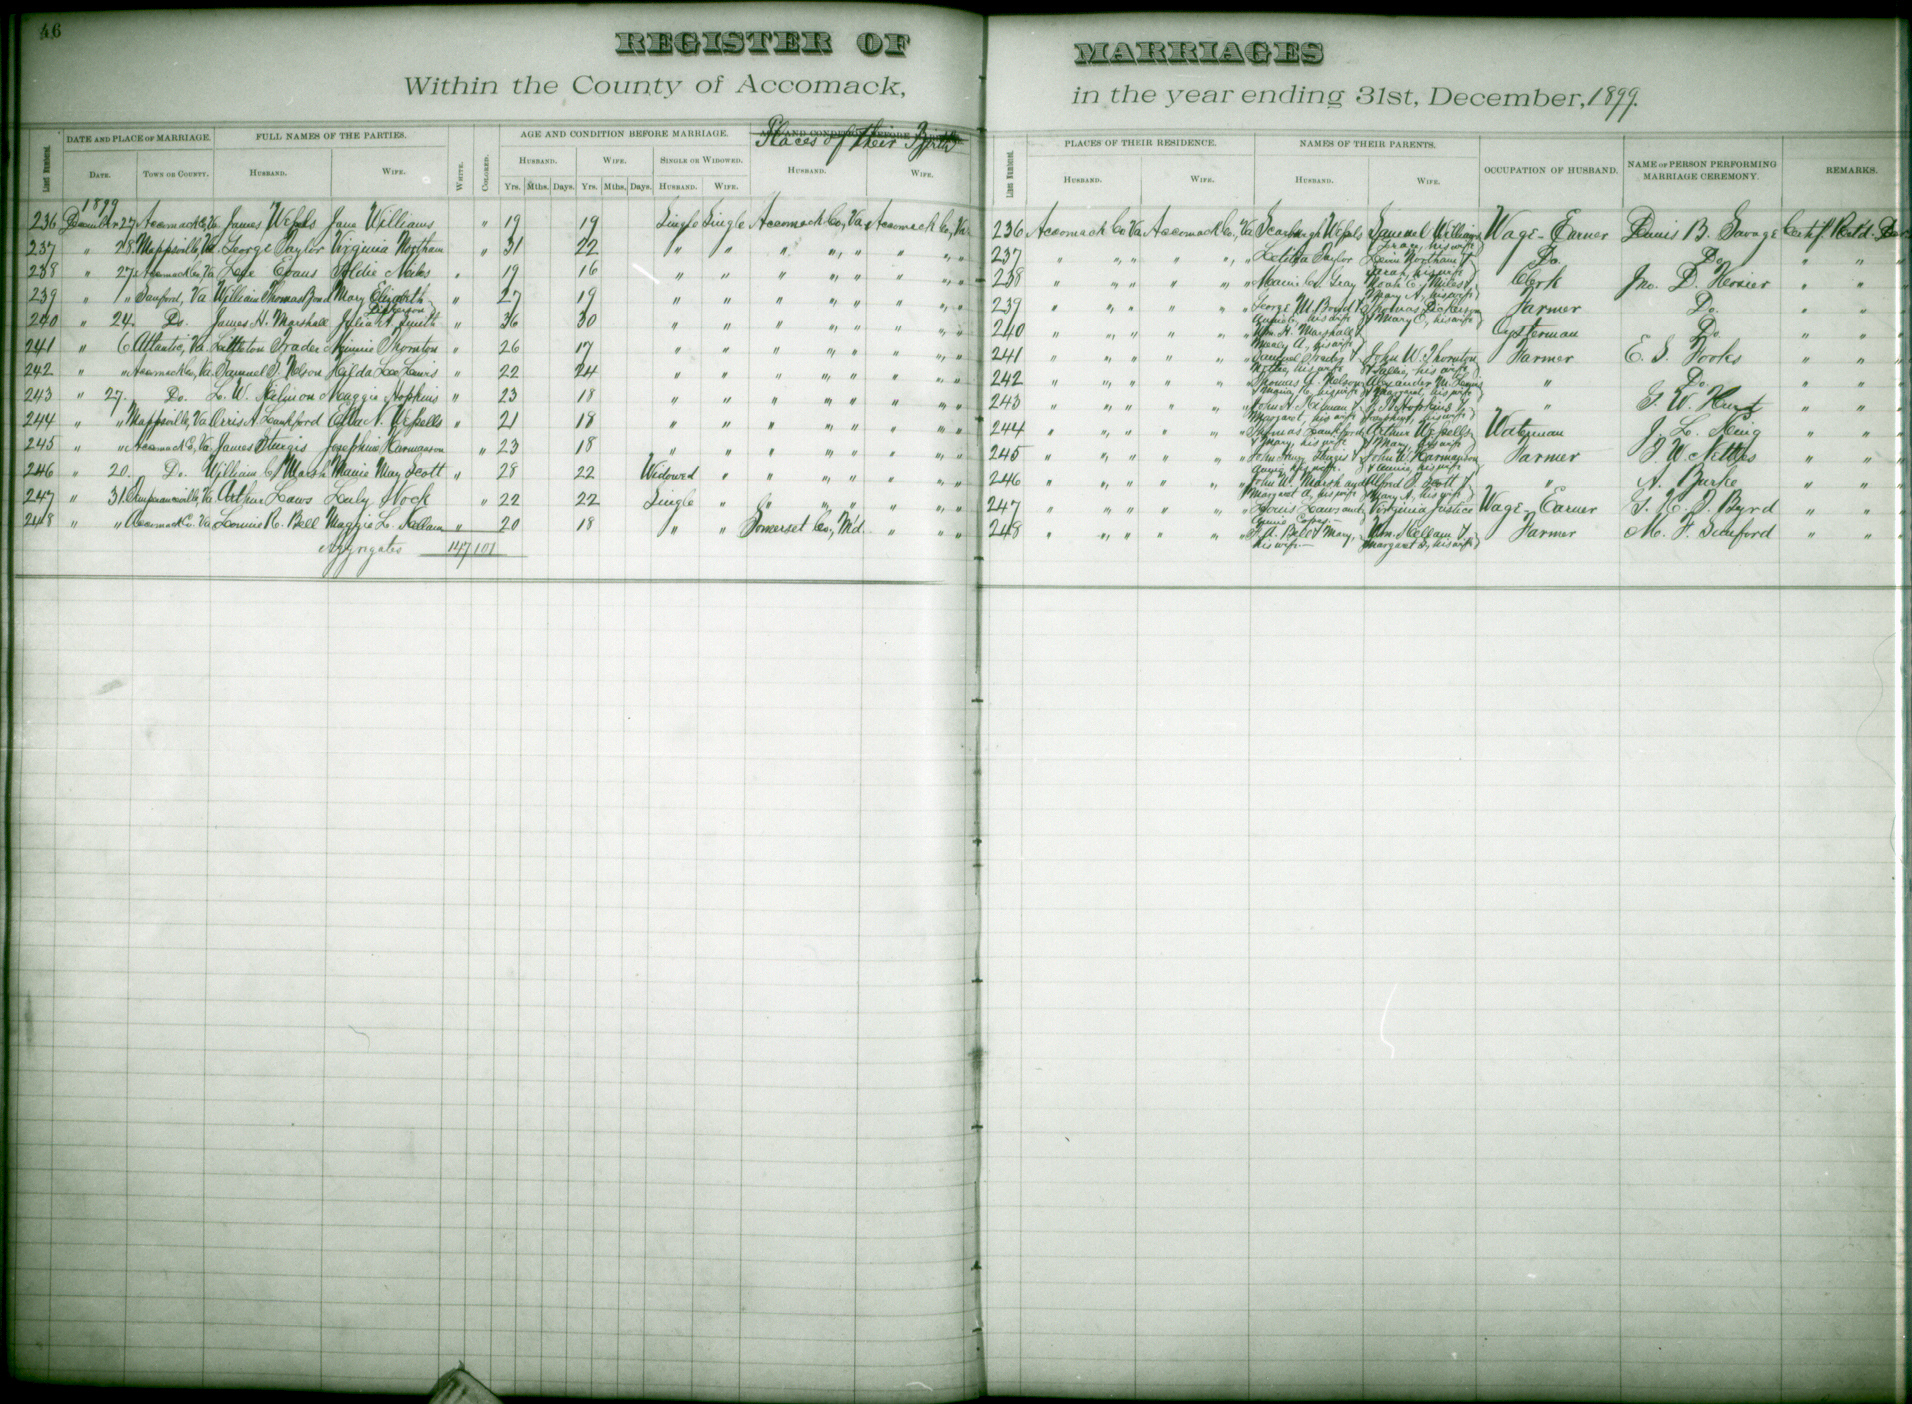 46
REGISTER OF MARRIAGES
Within the County of Accomack, in the year ending 31st, December, 1899.
LINES NUMBERED. DATE AND PLACE OF MARRIAGE. FULL NAMES OF THE PARTIES. WHITE. COLORED. AGE AND CONDITION BEFORE MARRIAGE. Places of their Birth
DATE. TOWN OR COUNTY. HUSBAND. WIFE. HUSBAND. WIFE. SINGLE OR WIDOWED. HUSBAND. WIFE.
Yrs. Mths. Days. Yrs. Mths. Days. HUSBAND. WIFE.
1899
236 December 27 Accomack Co, Va. James Wessels Jane Williams " 19 19 Single Single Accomack Co, Va Accomack Co, Va
237 " 28 Mappsville, Va George Taylor Virginia Northam " 31 22 " " " " " " " "
238 " 27 Accomack Co, Va Evans Goldie Miles " 19 16 " " " " " " " "
239 " " Sanford, Va William Thomas Bond Mary Elizabeth Dickerson " 27 19 " " " " " " " "
240 " 24 Do. James H. Marshall Julia A. Smith " 36 30 " " " " " " " "
241 " 6 Atlantic, Va. Littleton Trader Minnie Thornton " 26 17 " " " " " " " "
242 " " Accomack Co, Va. Samuel T. Nelson Hilda Lee Lewis " 22 24 " " " " " " " "
243 " 27 Do. L. W. Kelmon Maggie Hopkins " 23 18 " " " " " " " "
244 " " Mappsville, Va Orris A. Lankford Etta N. Wessells " 21 18 " " " " " " " "
245 " " Accomack Co, Va. James Sturgis Josephine Harmanson " 23 18 " " " " " " " "
246 " 20 Do. William C. Marsh Mamie May Scott " 28 22 Widowed " " " " " " "
247 " 31 Temperanceville, Va. Arthur Laws Luly Stock " 22 22 Single " " " " " " "
248 " " Accomack Co. Va Lonnie R. Bell Maggie L. Kellam " 20 18 " " Somerset Co, Md. " " "
Aggregates 147 101
LINES NUMBERED. PLACES OF THEIR RESIDENCE. NAMES OF THEIR PARENTS. OCCUPATION OF HUSBAND. NAME OF PERSON PERFORMING MARRIAGE CEREMONY. REMARKS.
HUSBAND. WIFE. HUSBAND. WIFE.
236 Accomack Co Va Accomack Co, Va Wessels Samuel Williams his wife Wage-Earner Dennis B. Savage Certif. Retd.
237 " " " " " " Letitia Taylor Northam & Sarah, his wife Do. Do. " "
238 " " " " " " Gray Noah C. Miles & Mary A., his wife Clerk Jno. D. " "
239 " " " " " " George W. Bond & his wife Thomas Dickerson & Mary C., his wife Farmer Do. " "
240 " " " " " " Wm. H. Marshall & A., his wife Oysterman Do. " "
241 " " " " " " Samuel Trader & his wife John W. Thornton & Sallie, his wife Farmer E. S. Fooks " "
242 " " " " " " Thomas J. Nelson his wife Alexander M. Lewis & Margaret, his wife " Do. " "
243 " " " " " " John H. Kelmon & Margaret, his wife Hopkins & his wife " G. W. Hurst " "
244 " " " " " " Thomas Lankford & Mary, his wife Arthur Wessells & Mary, his wife Waterman J. L. King " "
245 " " " " " " John Henry Sturgis & Annie, his wife John W. Harmanson & Annie, his wife Farmer F. W. Nettles " "
246 " " " " " " John W. Marsh and Margaret A., his wife Alfred T. Scott & Mary A., his wife " A. Burke " "
247 " " " " " " Louis Laws and Virginia Justice Wage-Earner G. H. T. Byrd " "
248 " " " " " " A. Bell & Mary, his wife Wm. Kellam & Margaret S., his wife Farmer M. F. Sanford " "